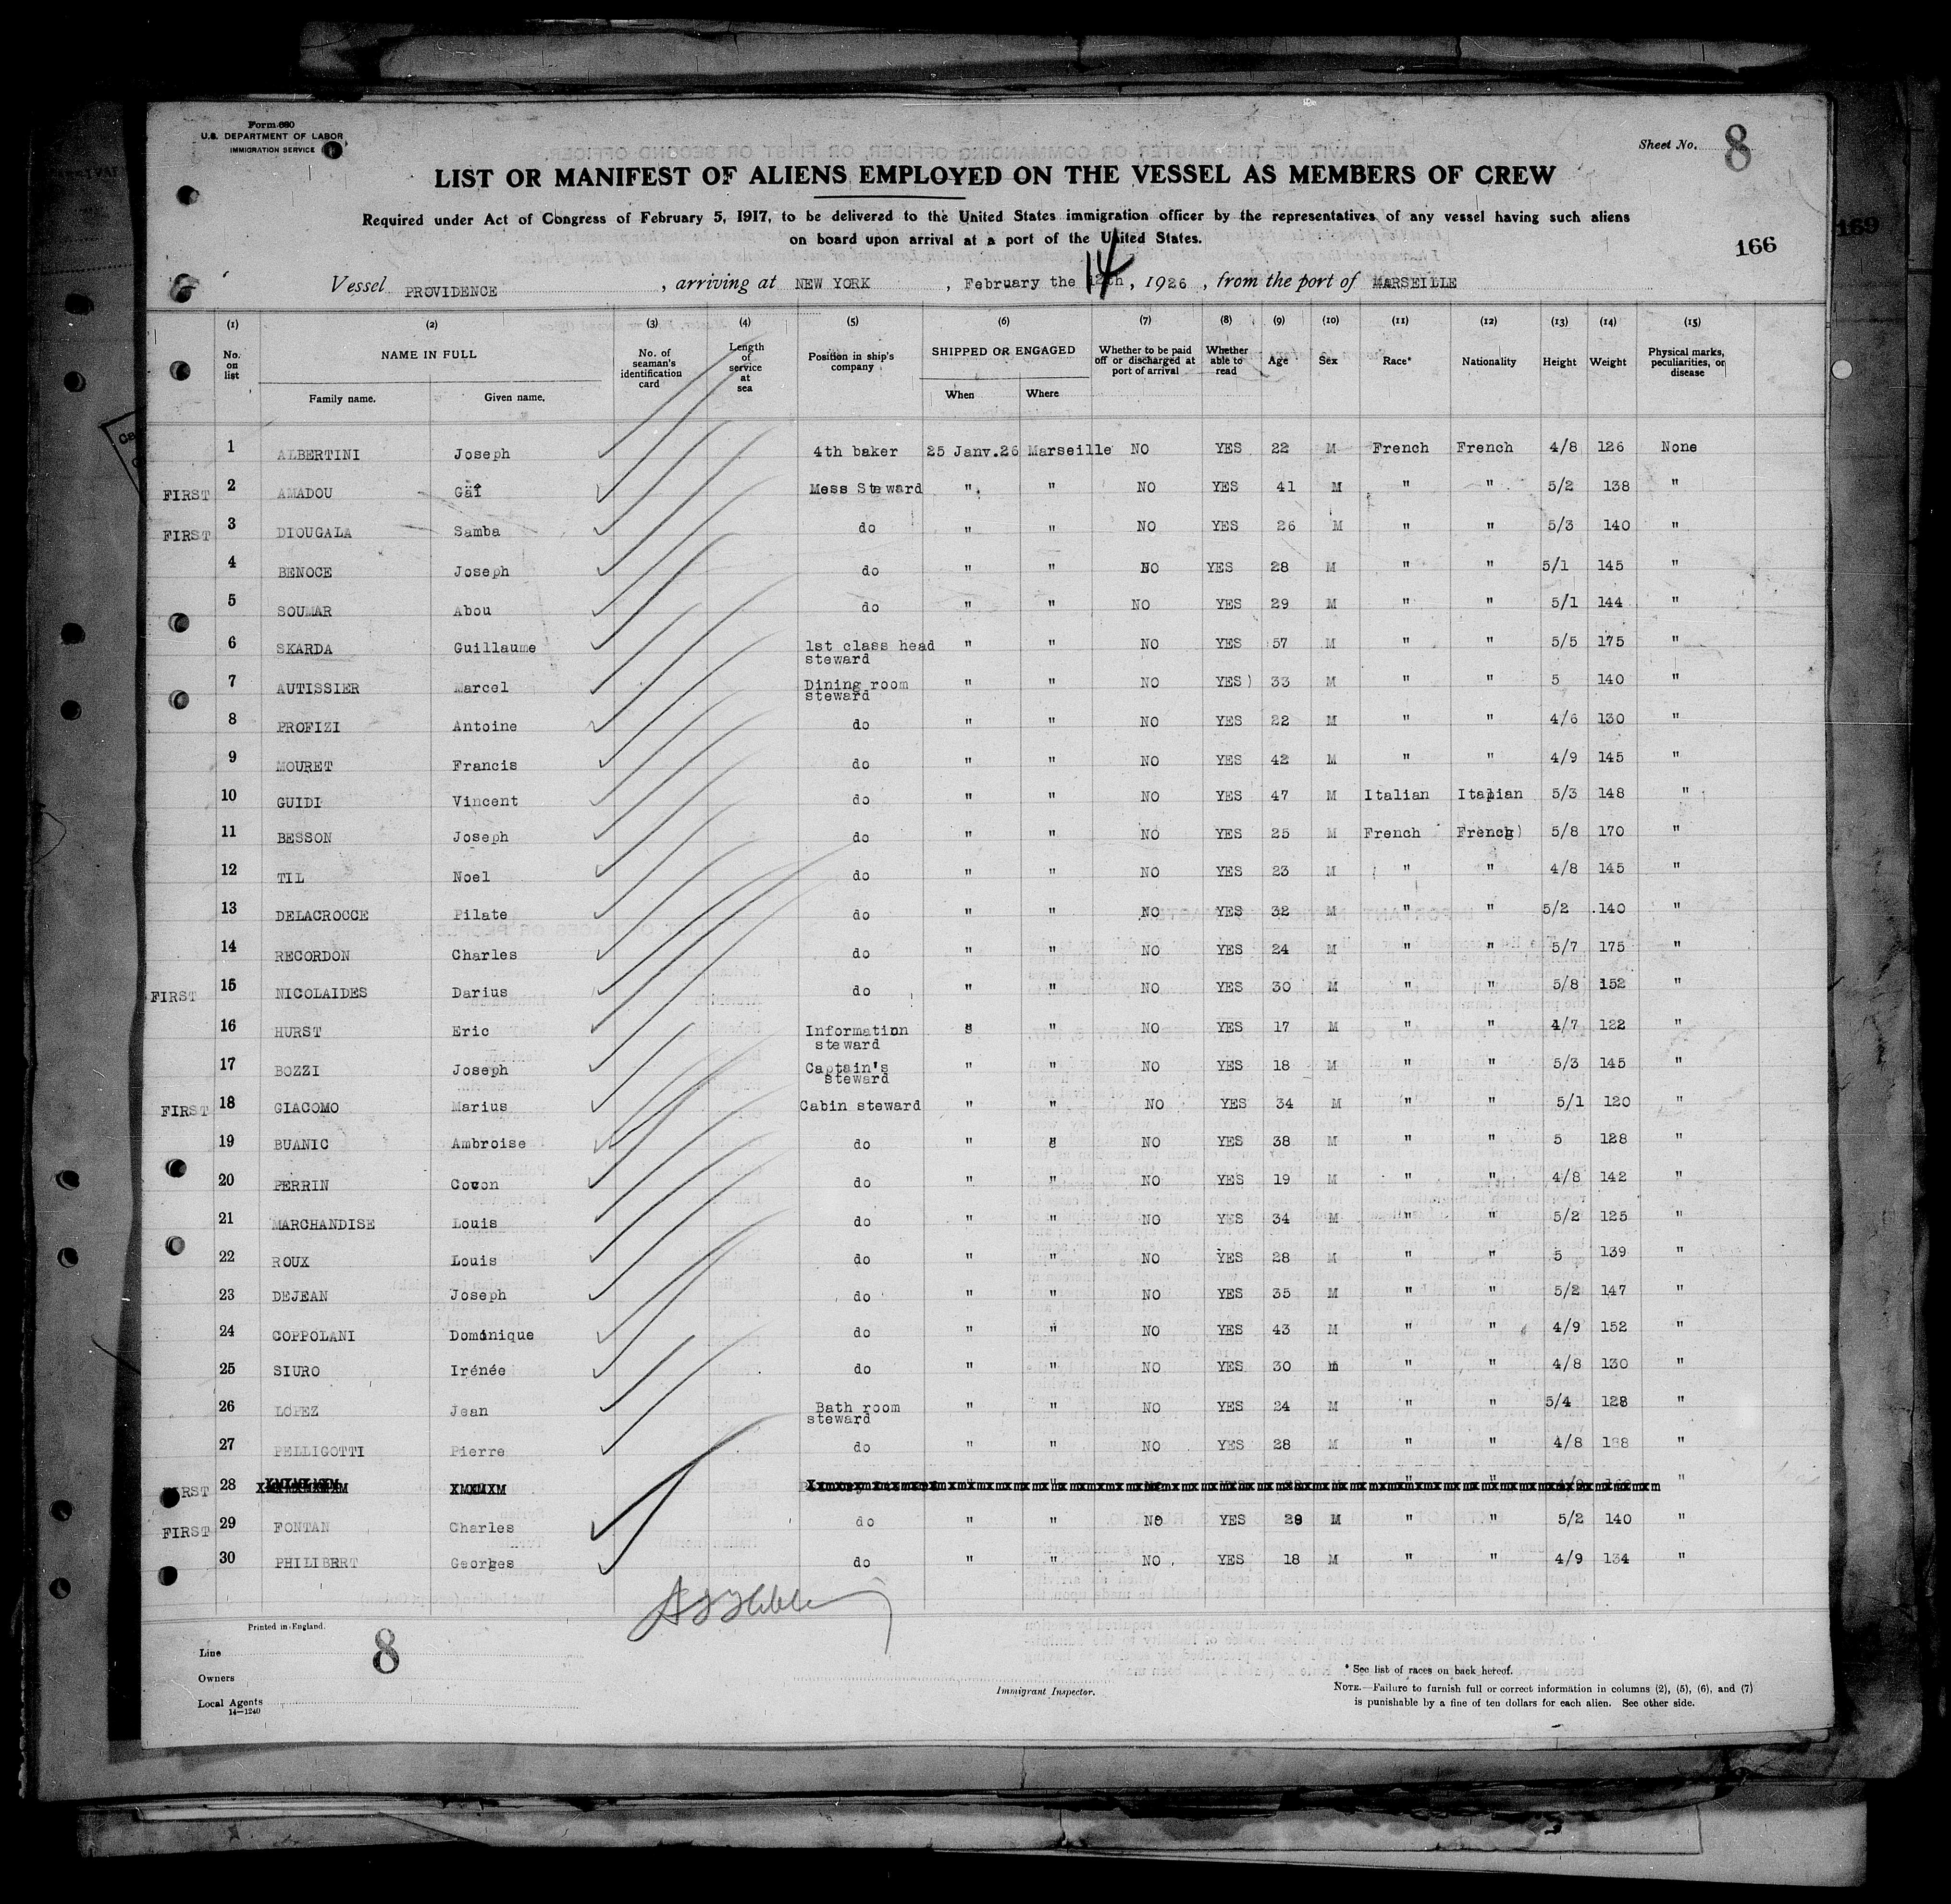 Form 680
U.S. DEPARTMENT OF LABOR
IMMIGRATION SERVICE
Sheet No. 8
LIST OR MANIFEST OF ALIENS EMPLOYED ON THE VESSEL AS MEMBERS OF CREW
Required under Act of Congress of February 5, 1917, to be delivered to the United States immigration officer by the representatives of any vessel having such aliens
on board upon arrival at a port of the United States.
166
169
14
Vessel PROVIDENCE, arriving at NEW YORK, February the 12th, 1926, from the port of MARSEILLE
(1) (2) (3) (4) (5) (6) (7) (8) (9) (10) (11) (12) (13) (14) (15)
No. on list NAME IN FULL Family name. Given name. No. of seaman's identification card Length of service at sea Position in ship's company SHIPPED OR ENGAGED When Where Whether to be paid off or discharged at port of arrival Whether able to read Age Sex Race* Nationality Height Weight Physical marks, peculiarities, or disease
1 ALBERTINI Joseph 4th baker 25 Janv.26 Marseille NO YES 22 M French French 4/8 126 None
FIRST 2 AMADOU Gaï Mess Steward " " NO YES 41 M " " 5/2 138 "
FIRST 3 DIOUGALA Samba do " " NO YES 26 M " " 5/3 140 "
4 BENOCE Joseph do " " NO YES 28 M " " 5/1 145 "
5 SOUMAR Abou do " " NO YES 29 M " " 5/1 144 "
6 SKARDA Guillaume 1st class head steward " " NO YES 57 M " " 5/5 175 "
7 AUTISSIER Marcel Dining room steward " " NO YES) 33 M " " 5 140 "
8 PROFIZI Antoine do " " NO YES 22 M " " 4/6 130 "
9 MOURET Francis do " " NO YES 42 M " " 4/9 145 "
10 GUIDI Vincent do " " NO YES 47 M Italian Italian 5/3 148 "
11 BESSON Joseph do " " NO YES 25 M French French) 5/8 170 "
12 TIL Noel do " " NO YES 23 M " " 4/8 145 "
13 DELACROCCE Pilate do " " NO YES 32 M " " 5/2 140 "
14 RECORDON Charles do " " NO YES 24 M " " 5/7 175 "
FIRST 15 NICOLAIDES Darius do " " NO YES 30 M " " 5/8 152 "
16 HURST Eric Information steward " " NO YES 17 M " " 4/7 122 "
17 BOZZI Joseph Captain's steward " " NO YES 18 M " " 5/3 145 "
FIRST 18 GIACOMO Marius Cabin steward " " NO YES 34 M " " 5/1 120 "
19 BUANIC Ambroise do " " NO YES 38 M " " 5 128 "
20 PERRIN Cocon do " " NO YES 19 M " " 4/8 142 "
21 MARCHANDISE Louis do " " NO YES 34 M " " 5/2 125 "
22 ROUX Louis do " " NO YES 28 M " " 5 139 "
23 DEJEAN Joseph do " " NO YES 35 M " " 5/2 147 "
24 COPPOLANI Dominique do " " NO YES 43 M " " 4/9 152 "
25 SIURO Irénée do " " NO YES 30 m " " 4/8 130 "
26 LOPEZ Jean Bath room steward " " NO YES 24 M " " 5/4 128 "
27 PELLIGOTTI Pierre do " " NO YES 28 M " " 4/8 "
FIRST 28 "
FIRST 29 FONTAN Charles do " " NO YES 29 M " " 5/2 140 "
30 PHILIBERT Georges do " " NO YES 18 M " " 4/9 134 "
Printed in England.
8
Line
Owners
Local Agents
14—1240
Immigrant Inspector.
* See list of races on back hereof.
NOTE.—Failure to furnish full or correct information in columns (2), (5), (6), and (7)
is punishable by a fine of ten dollars for each alien. See other side.